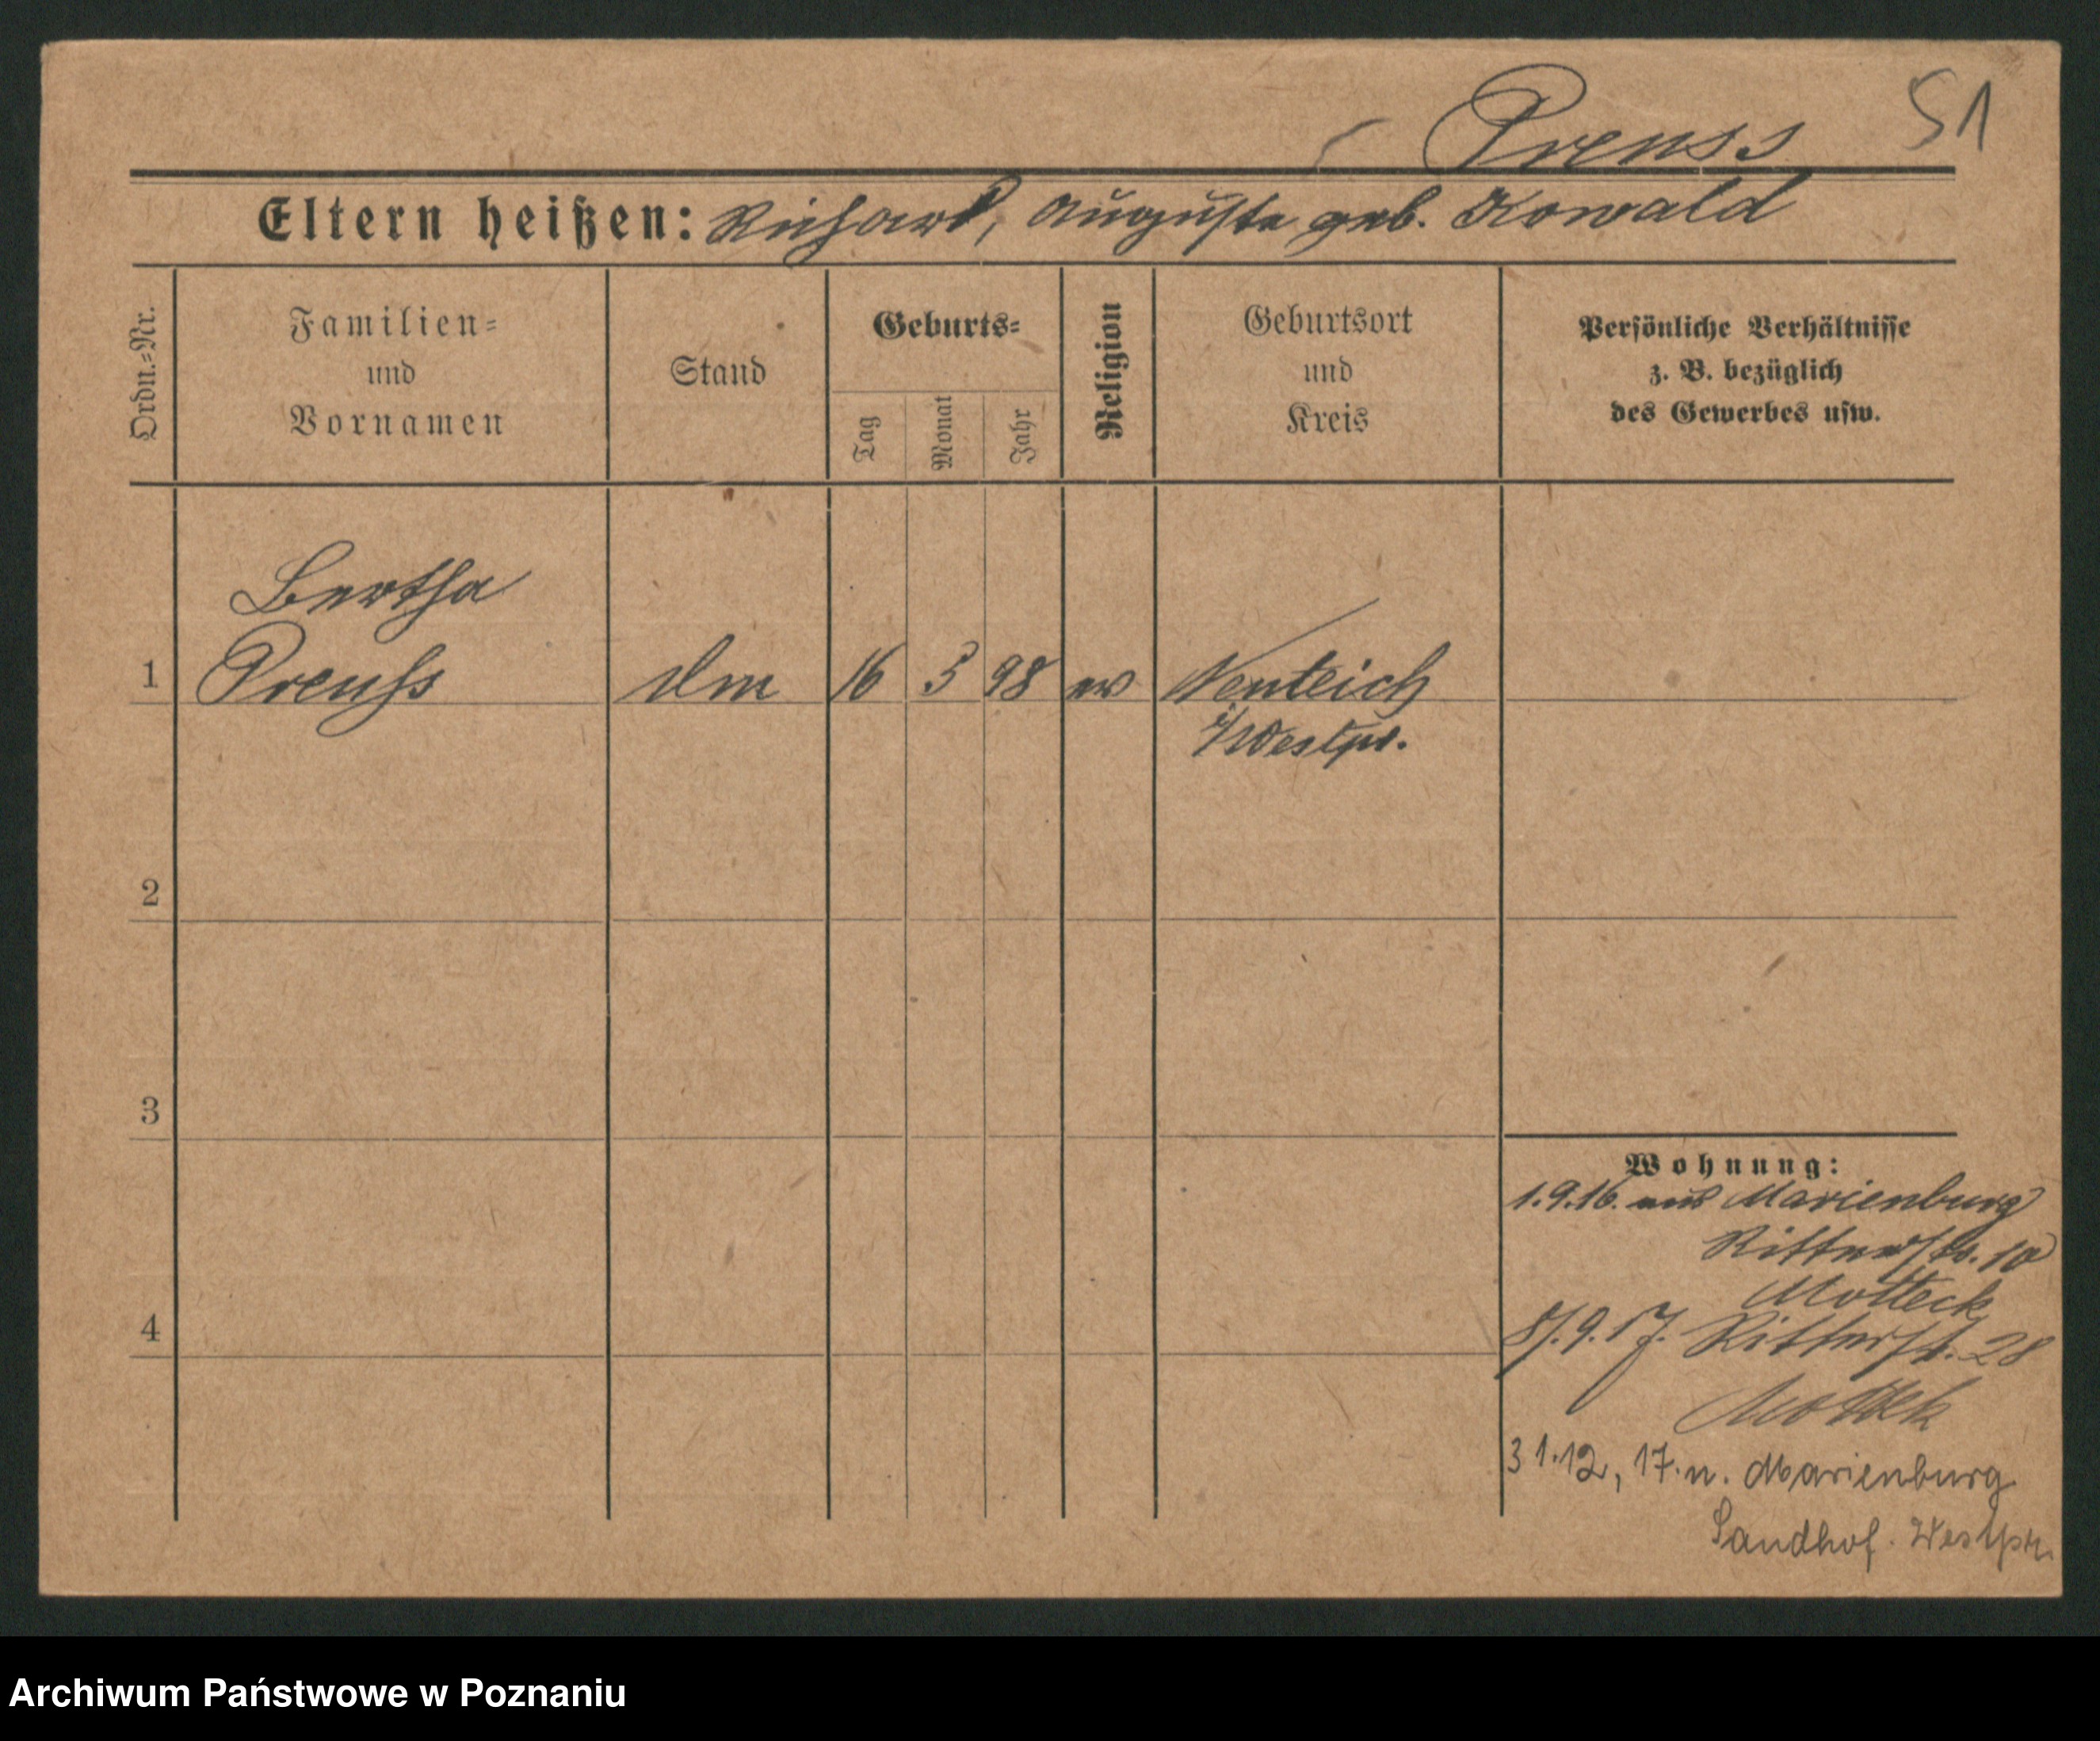 Preuss 51
Eltern heißen: Richard, Auguste geb. Kowald
Ordn.=Nr.
Familien=
und
Vornamen
Stand
Geburts=
Tag
Monat
Jahr
Religion
Geburtsort
und
Kreis
Persönliche Verhältnisse
z. B. bezüglich
des Gewerbes usw.
Bertha
1 Preuss 16 3 98 ev Neuteich
i/Westpr.
2
3
4
Wohnung:
1.9.16. aus Marienburg
Ritterstr. 10
Motteck
8/.9.17. Ritterst. 28
Mottek
31.12, 17. n. Marienburg
Sandhof. Westpr.
Archiwum Państwowe w Poznaniu